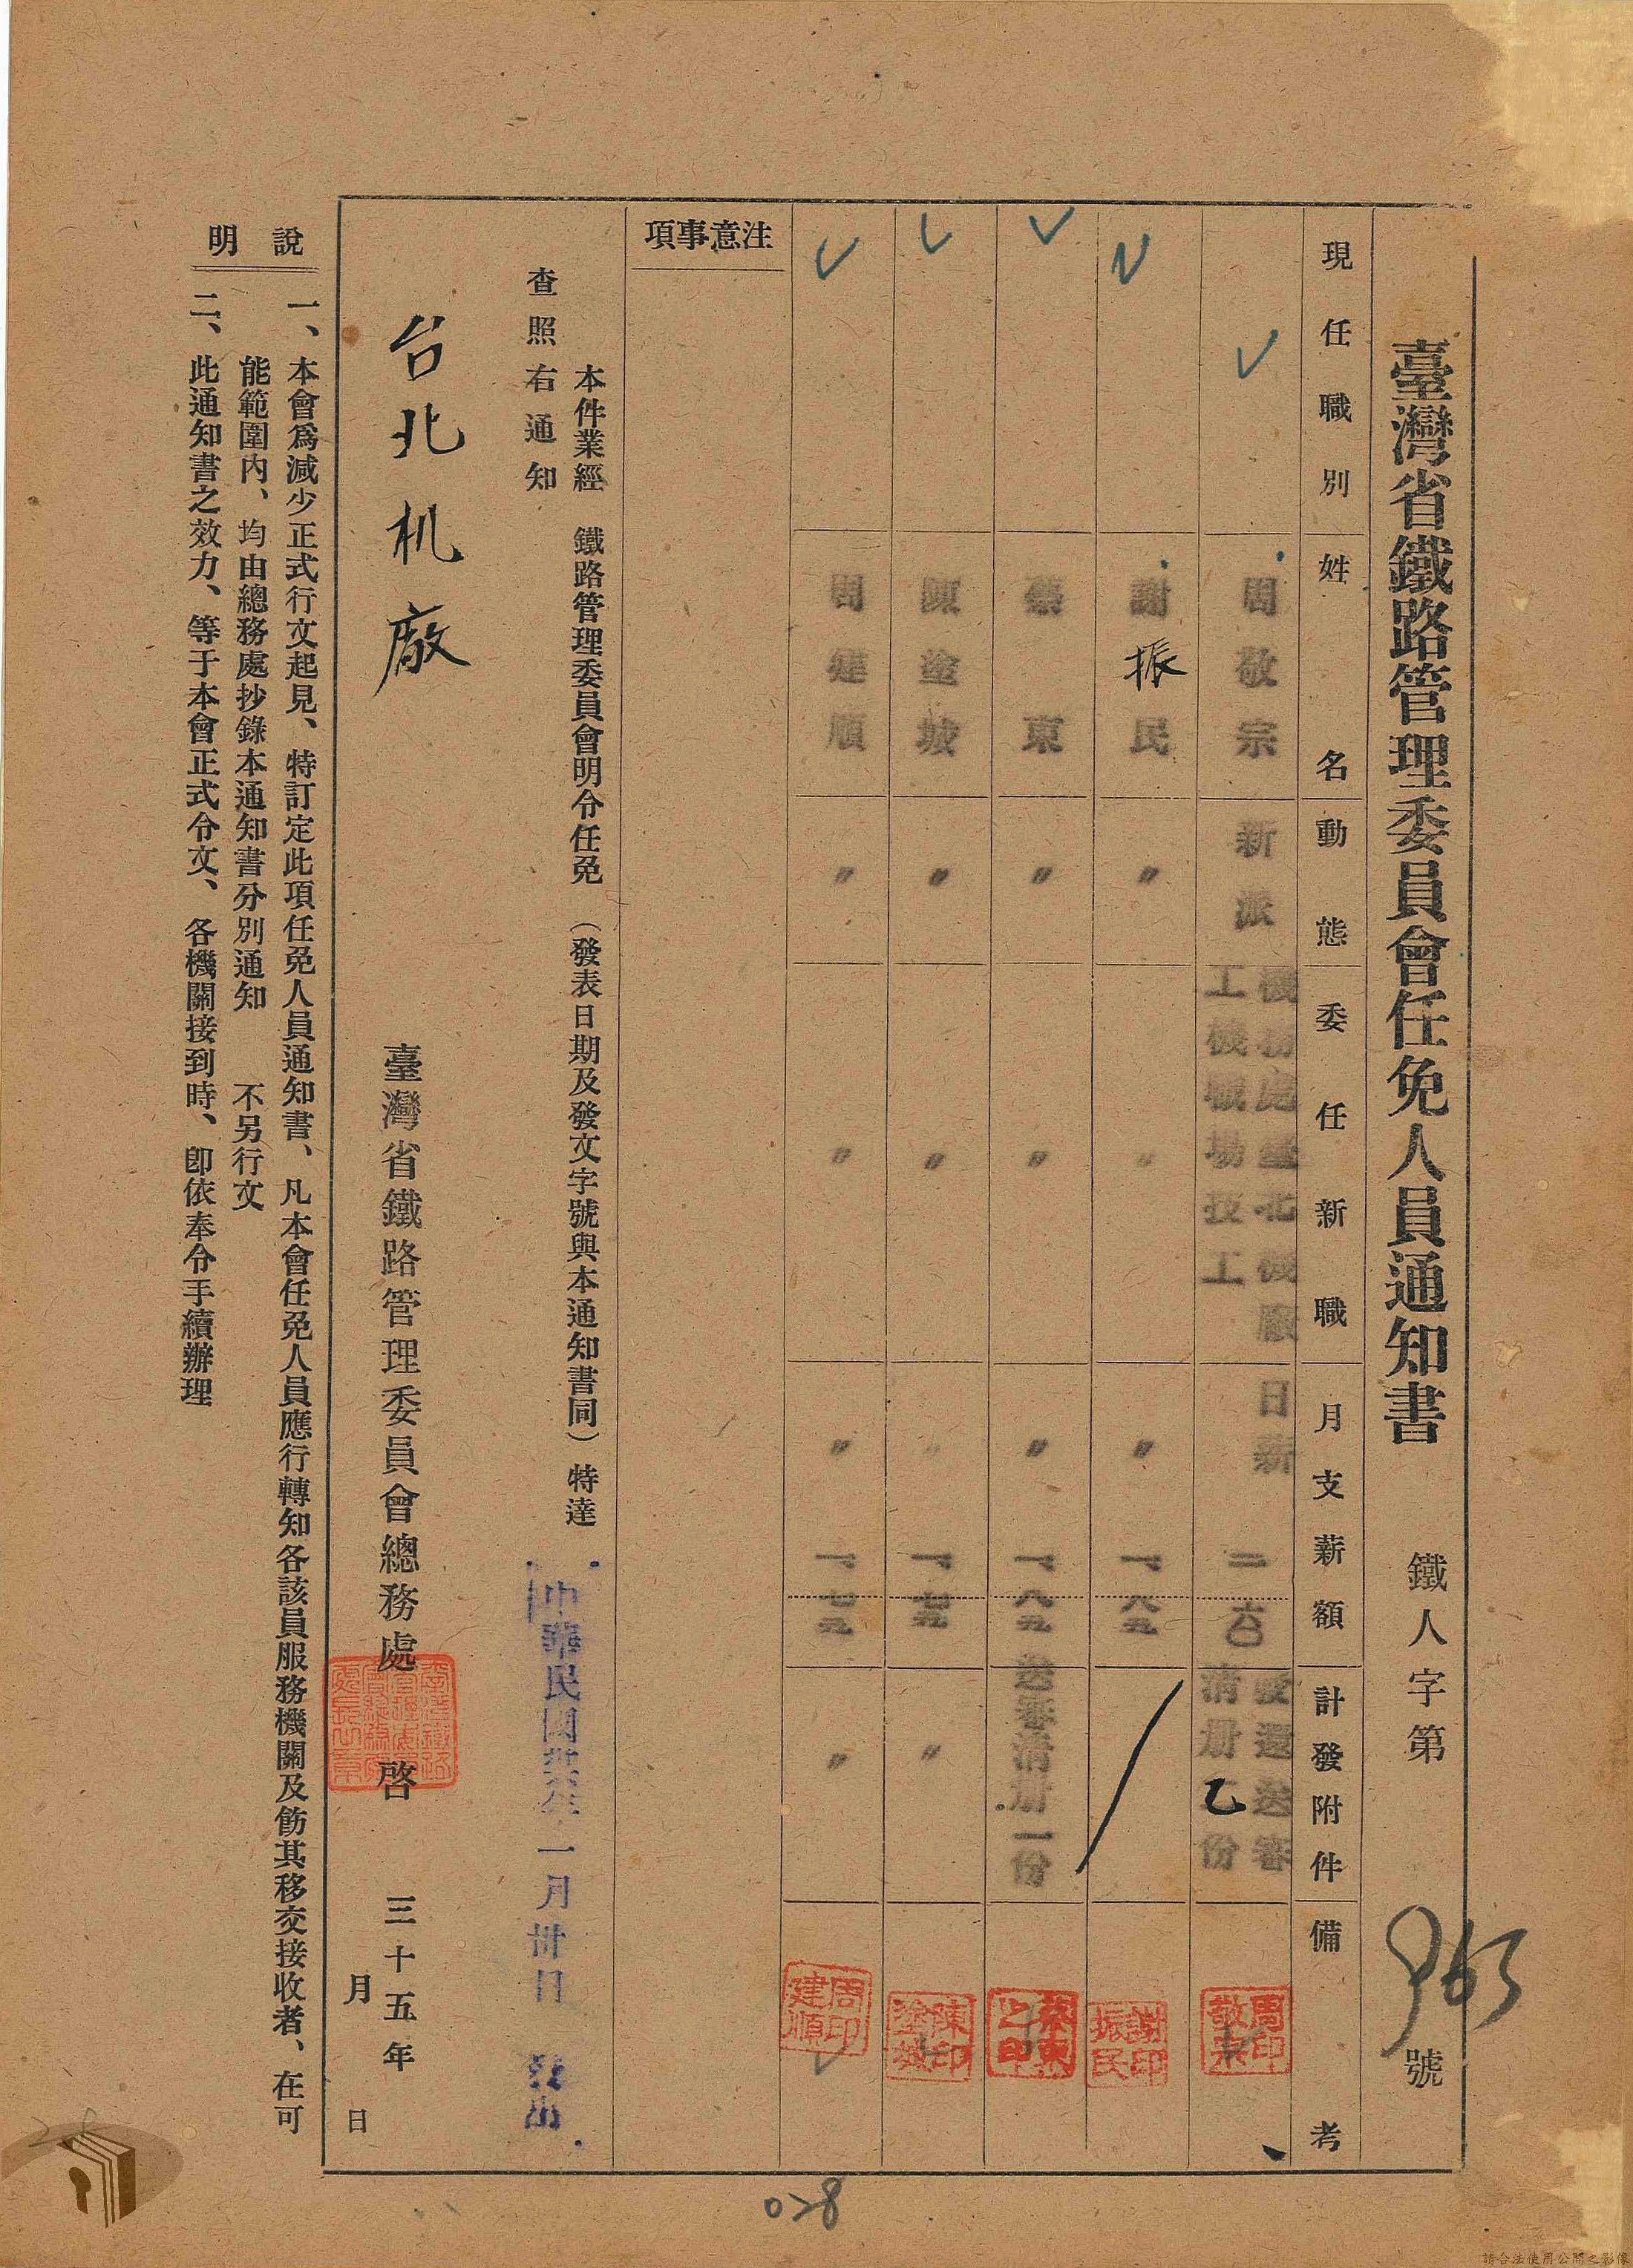 臺灣省鐵路管理委員會任免人員通知書　鐵人字第963號
現任職別　姓名　動態　委任新職　月支薪額　計發附件　備考
周敬宗　新派　機務處臺北機廠工機職場技工　日薪　二六〇　發還送審清册乙份　周印敬宗
謝振民　〃　〃　〃　一八五　謝印振民
蔡東　〃　〃　〃　一八五　送審清册一份　蔡東之印
陳塗坡　〃　〃　〃　一七五　〃　陳印塗坡
周建順　〃　〃　〃　一七五　〃　周印建順
注意事項
本件業經　鐵路管理委員會明令任免（發表日期及發文字號與本通知書同）特達
查照右通知
中華民國卅五年一月卅日發出
台北机廠
臺灣省鐵路管理委員會總務處　啓　三十五年
月　日
說明
一、本會爲減少正式行文起見、特訂定此項任免人員通知書、凡本會任免人員應行轉知各該員服務機關及飭其移交接收者、在可
能範圍內、均由總務處抄錄本通知書分別通知　不另行文
二、此通知書之效力、等于本會正式令文、各機關接到時、卽依奉令手續辦理
028
請合法使用公開之影像